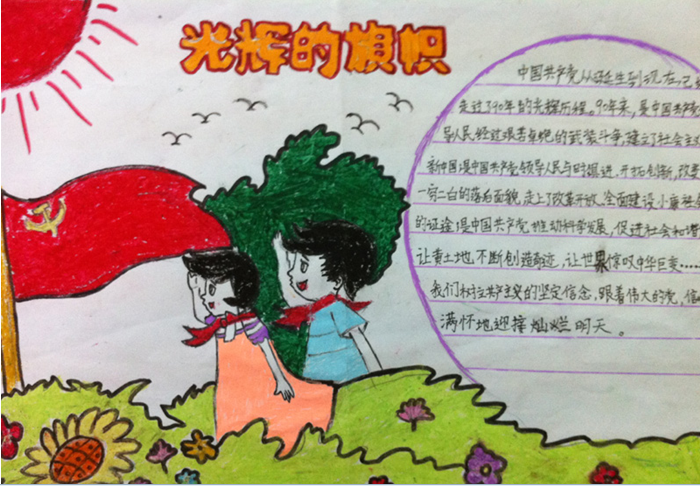 光辉的旗帜
中国共产党从诞生到现在已
走过了90年的光辉历程。90年来,是中国共产党
导人民经过艰苦卓绝的武装斗争,建立了社会主
新中国;是中国共产党领导人民与时俱进、开拓创新,改变
一穷二白的落后面貌,走上了改革开放、全面建设小康社
的征途;是中国共产党推动科学发展,促进社会和谐
让黄土地不断创造奇迹,让世界惊叹中华巨变……
我们树立共产主义的坚定信念,跟着伟大的党,信
满怀地迎择灿烂明天。